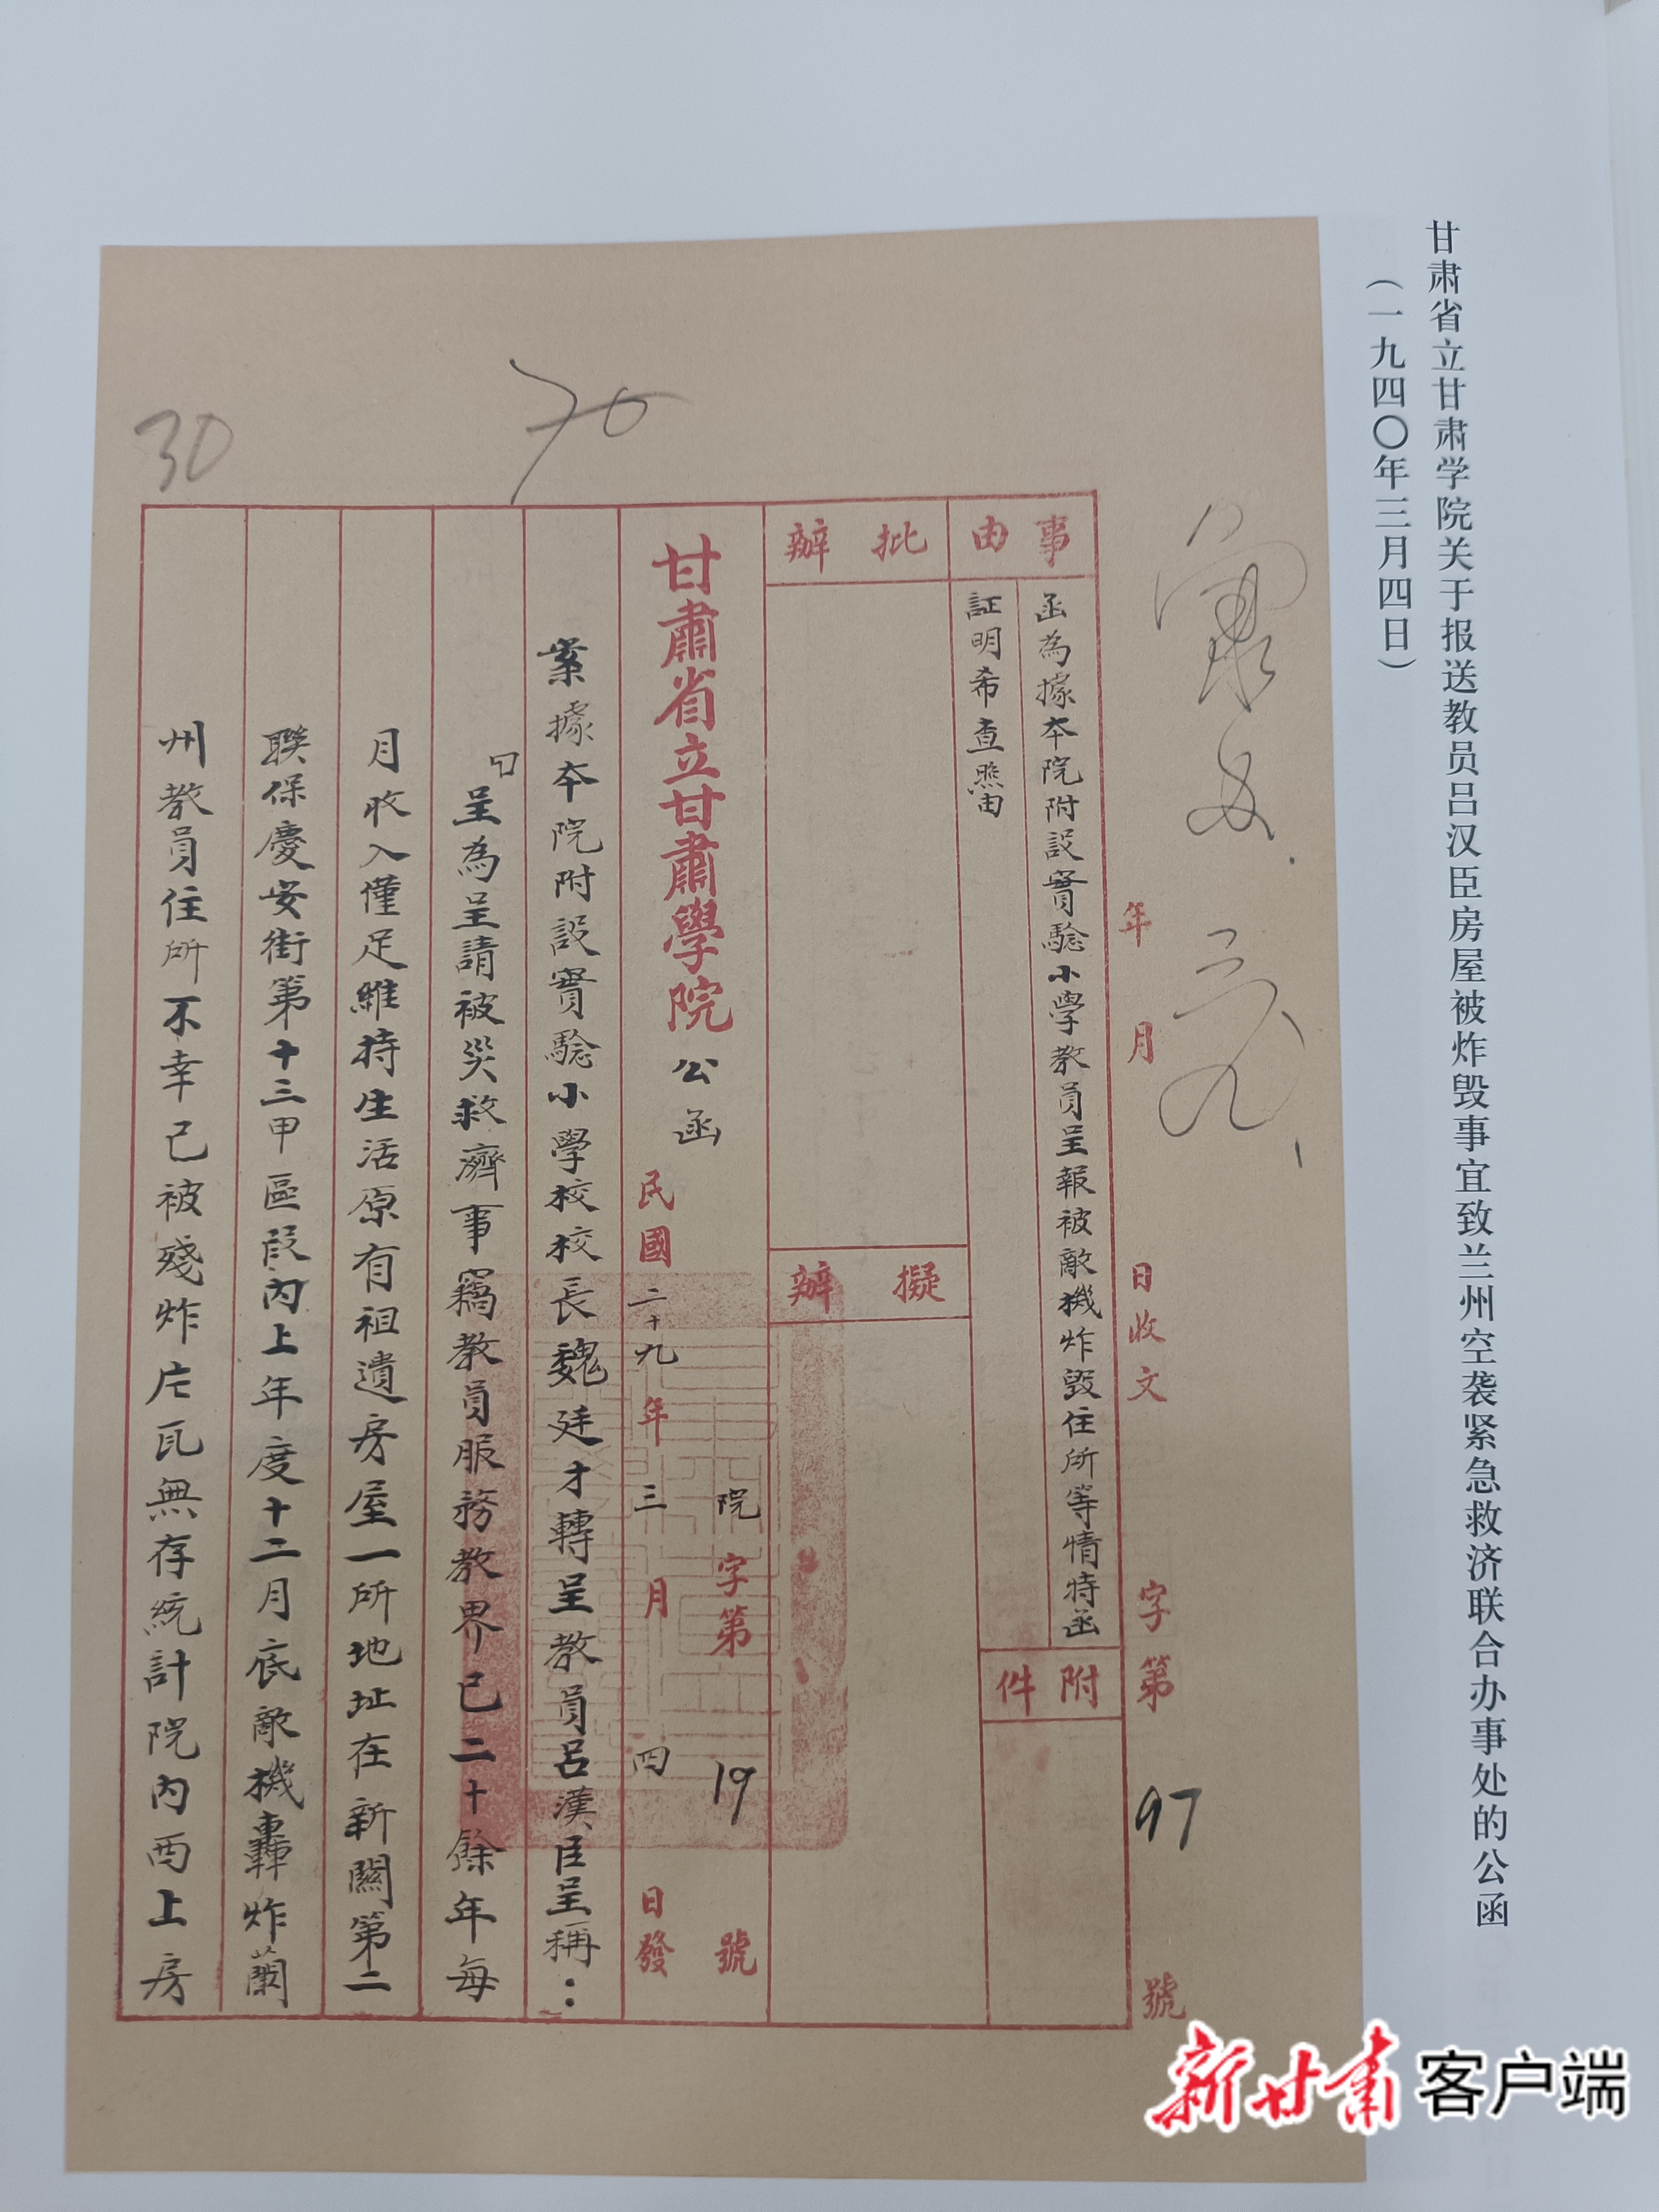 甘肃省立甘肃学院关于报送教员吕汉臣房屋被炸毁事宜致兰州空袭紧急救济联合办事处的公函
（一九四〇年三月四日）
年 月 日收文 字第 97 號
事由
函為據本院附設實驗小學教員呈報被敵機炸毀住所等情特函
証明希查照由
附件
批辦
擬辦
甘肅省立甘肅學院公函
院字第 19 號
民國二十九年三月四日發
案據本院附設實驗小學校校長魏廷才轉呈教員呂漢臣呈稱：
呈為呈請被災救濟事竊教員服務教界已二十餘年每
月收入僅足維持生活原有祖遺房屋一所地址在新關第二
聯保慶安街第十三甲區段內上年度十二月底敵機轟炸蘭
州教員住所不幸已被殘炸片瓦無存統計院內西上房
70
30
新甘肃客户端